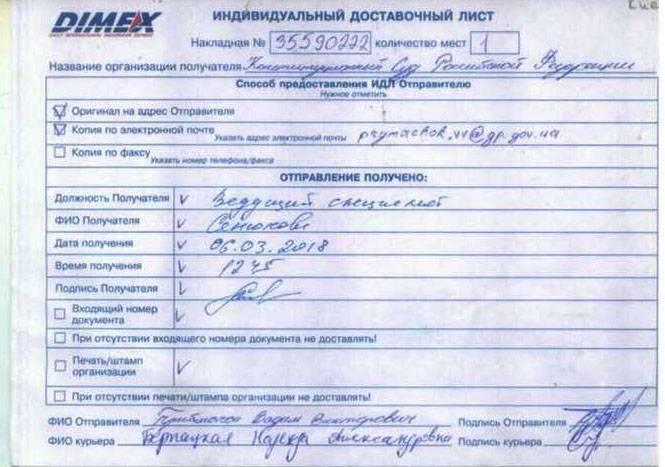 DIMEX
ИНДИВИДУАЛЬНЫЙ ДОСТАВОЧНЫЙ ЛИСТ
Накладная № 35590222 количество мест 1
Название организации получателя Конституционный Суд Российской Федерации
Способ предоставления ИДЛ Отправителю
Нужное отметить
Оригинал на адрес Отправителя
Копия по электронной почте Указать адрес электронной почты prymachok.vv@gp.gov.ua
Копия по факсу Указать номер телефона/факса
ОТПРАВЛЕНИЕ ПОЛУЧЕНО:
Должность Получателя V Ведущий специалист
ФИО Получателя V
Дата получения V 06.03.2018
Время получения V 1245
Подпись Получателя V
Входящий номер документа V
При отсутствии входящего номера документа не доставлять!
Печать/штамп организации V
При отсутствии печати/штампа организации не доставлять!
ФИО Отправителя Вадим Викторович Подпись Отправителя
ФИО курьера Надежда Александровна Подпись курьера